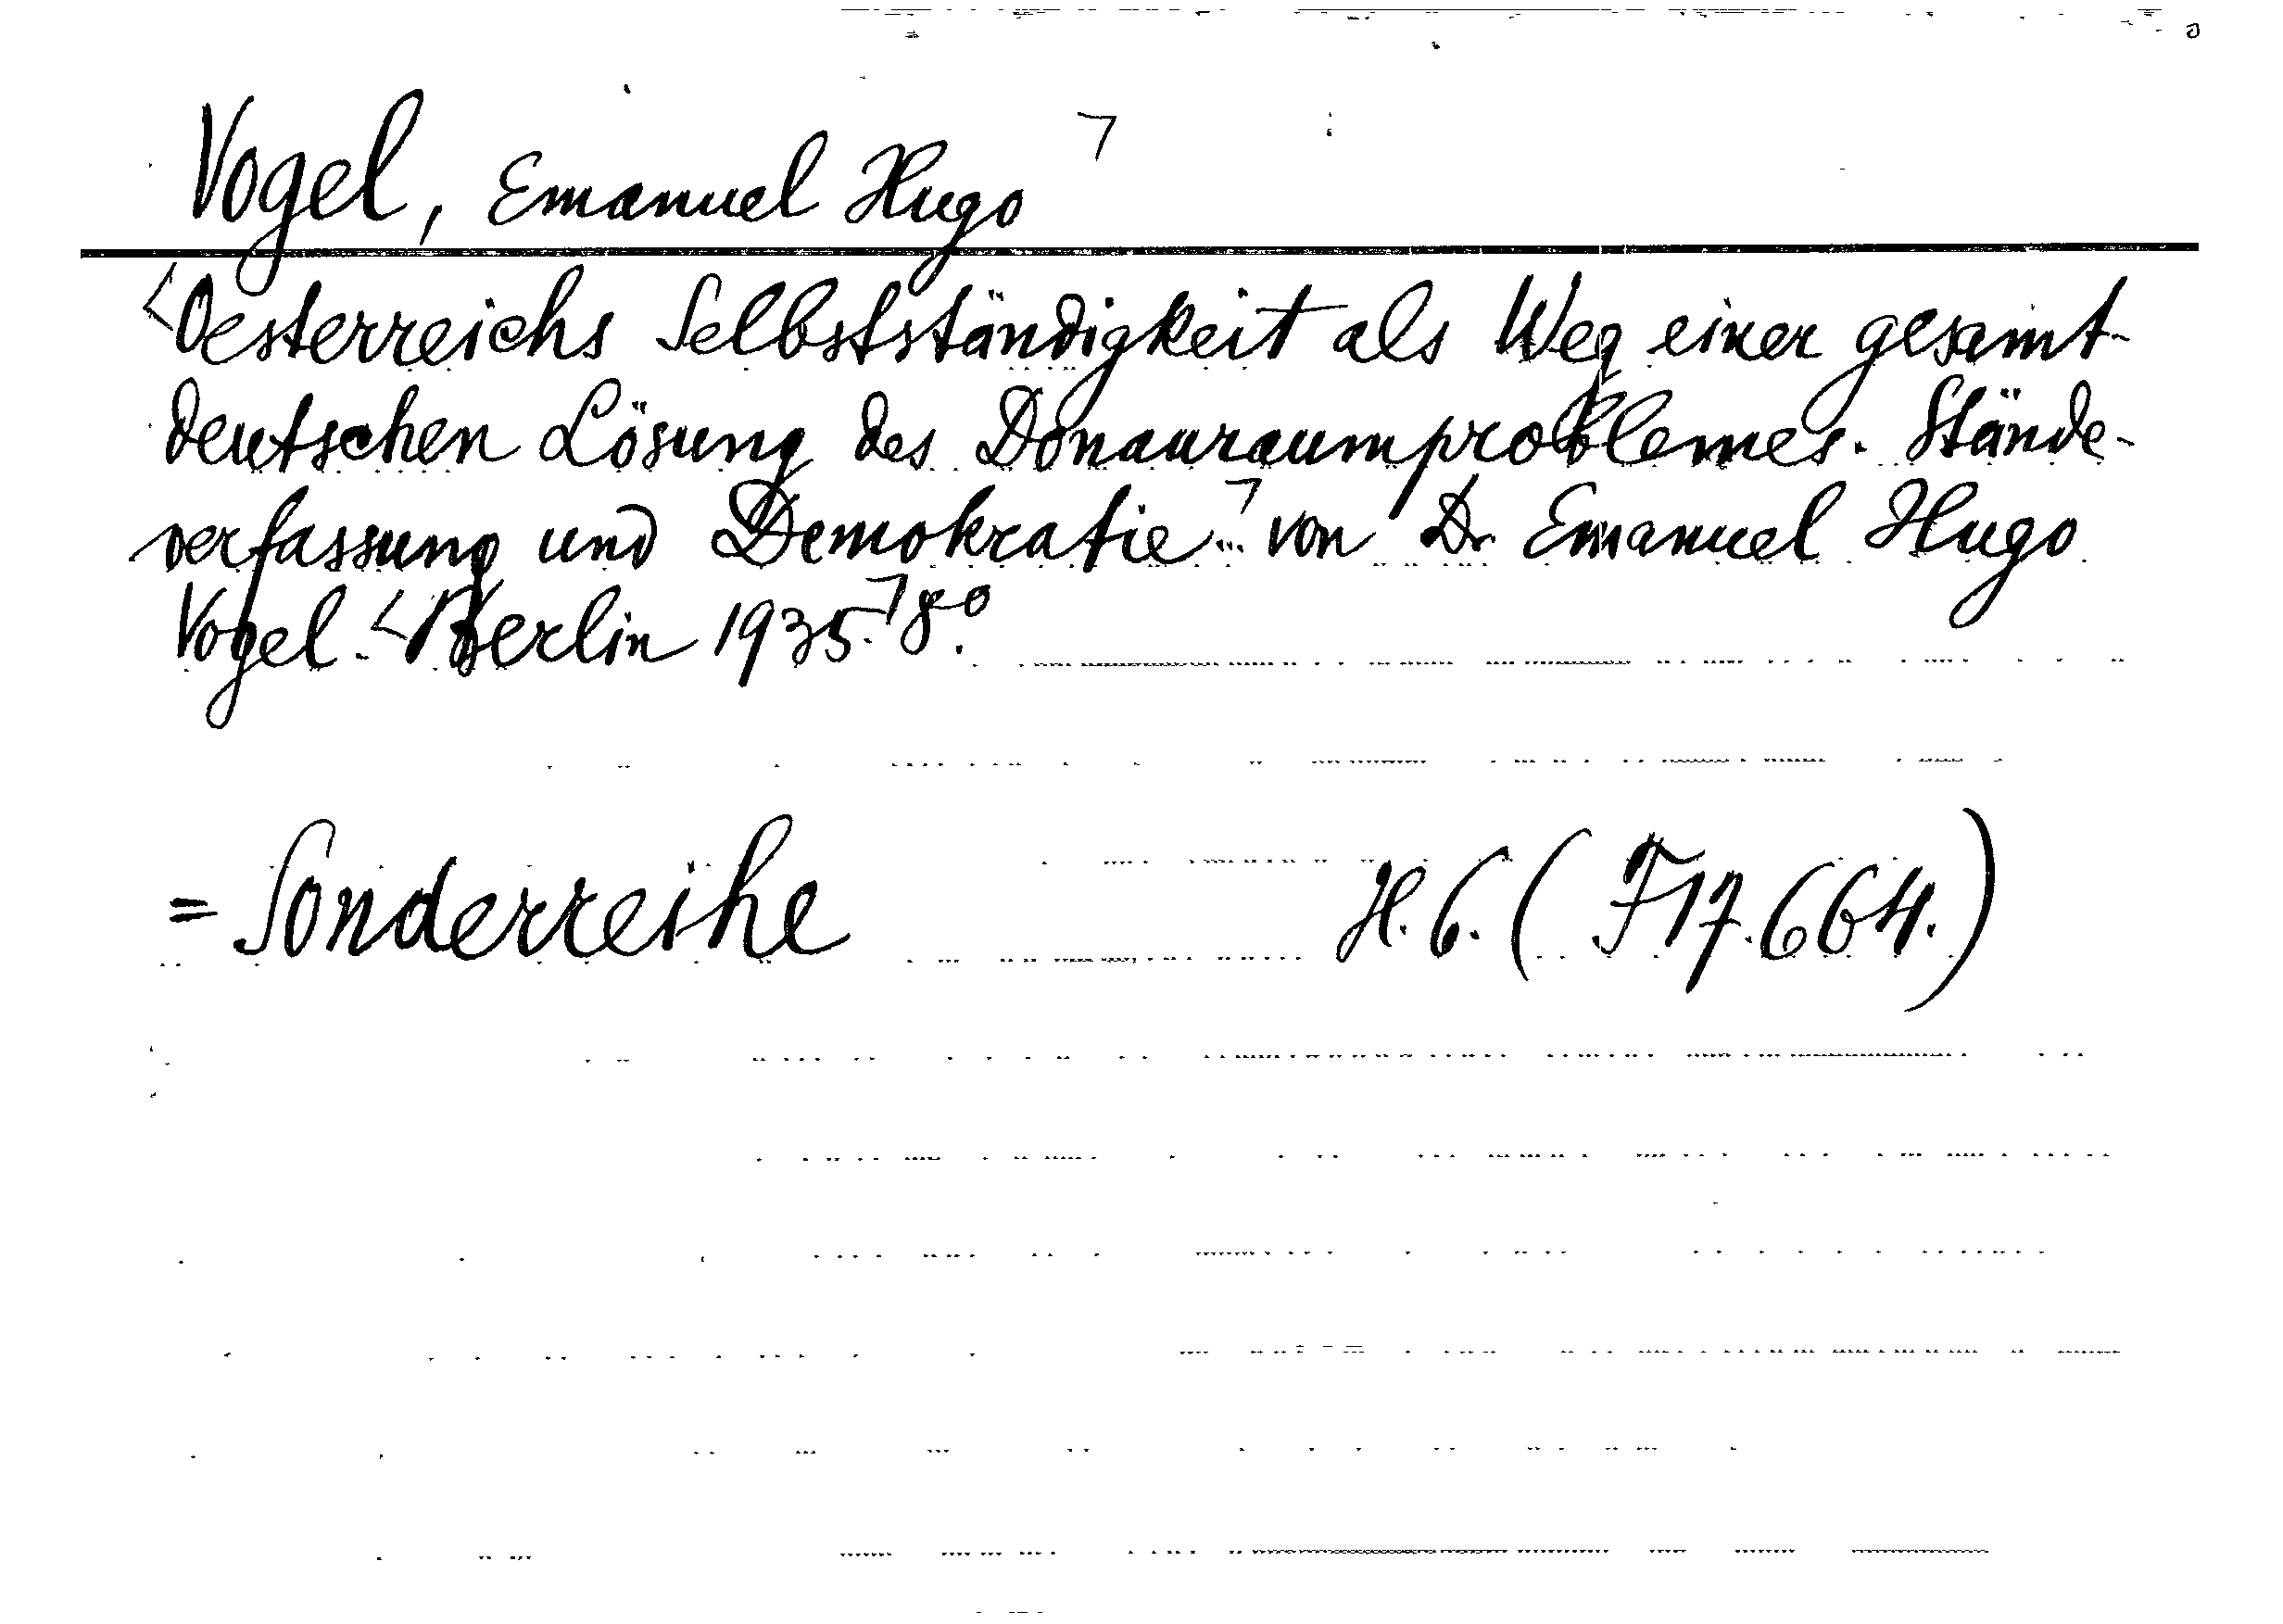 Vogel, Emanuel Hugo ⌝
<Oesterreichs Selbstständigkeit als Weg einer gesamt-
deutschen Lösung des Donauraumproblemes. Stände-
verfassung und Demokratie⌝... von Dr. Emanuel Hugo
Vogel. <Berlin 1935.⌝ 8°.
= Sonderreihe H. 6. (F17.664.)